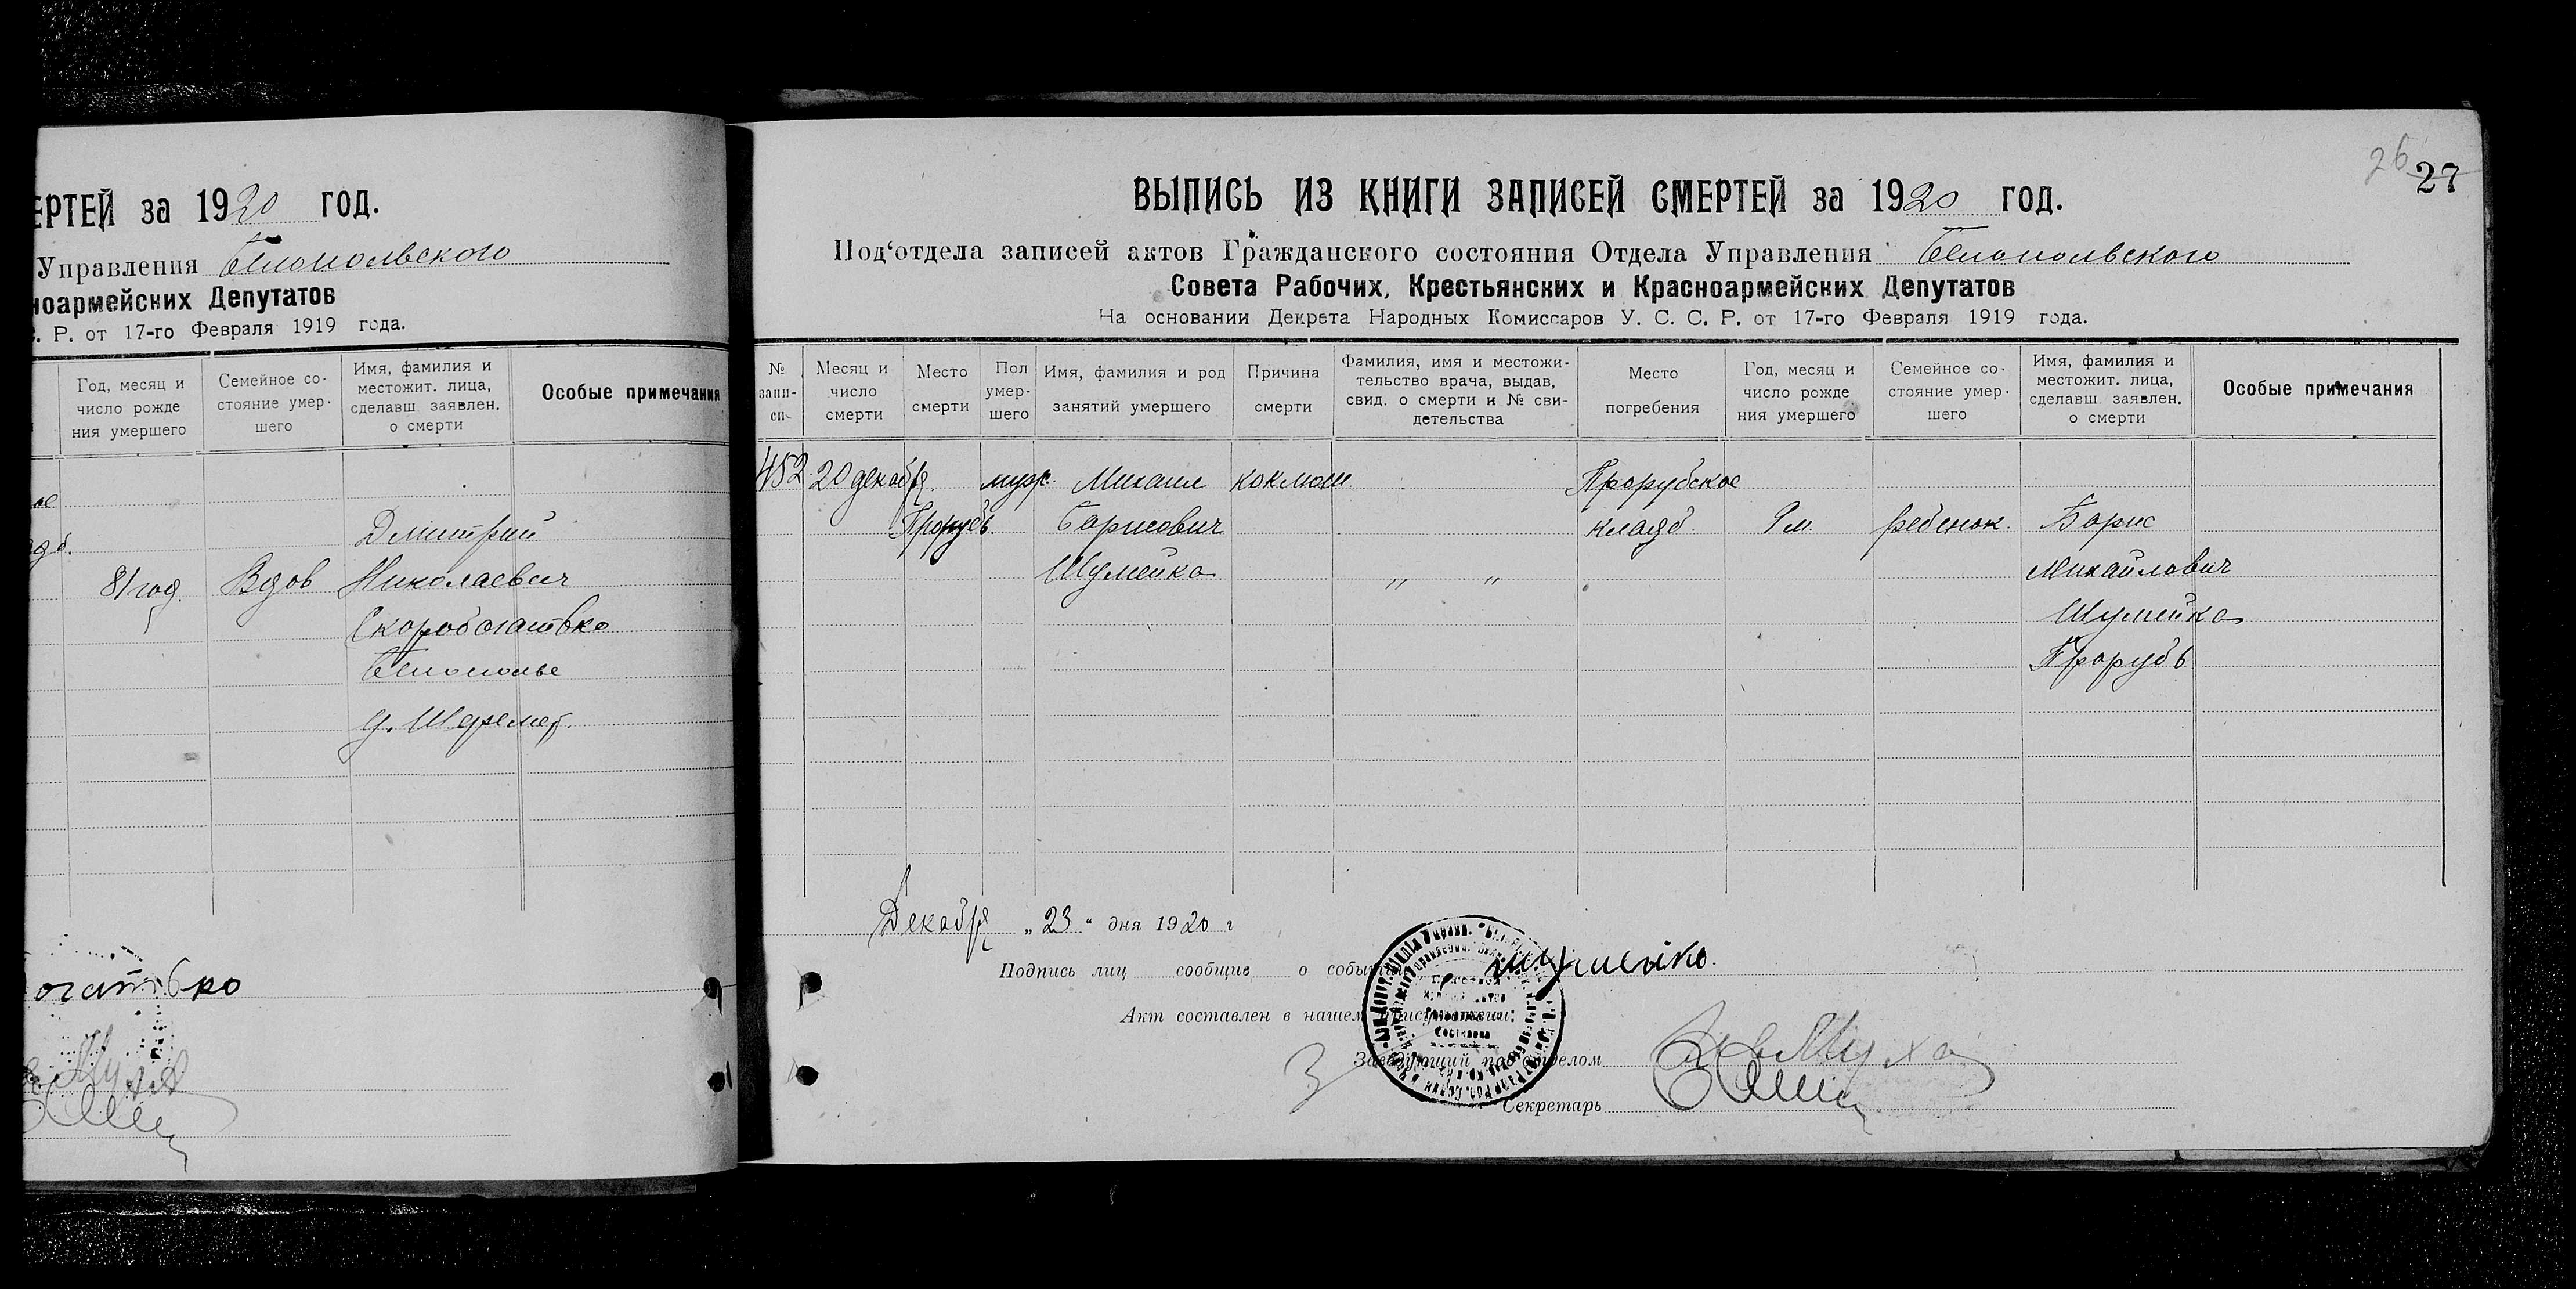 ЕРТЕЙ за 1920 год.
Управления Белопольского
ноармейских Депутатов
С. Р. от 17-го Февраля 1919 года.
Год, месяц и число рожде ния умершего
Семейное со- стояние умер- шего
Имя, фамилия и местожит. лица, сделавш. заявлен. о смерти
Особые примечания
ое
Дмитрий
адб.
81 год. Вдов Николаевич
Скоробогатько
Белополье
д. Шеремет.
огатько
26 27
ВЫПИСЬ ИЗ КНИГИ ЗАПИСЕЙ СМЕРТЕЙ за 1920 год.
Под‘отдела записей актов Гражданского состояния Отдела Управления Белопольского
Совета Рабочих, Крестьянских и Красноармейских Депутатов
На основании Декрета Народных Комиссаров У. С. С. Р. от 17-го Февраля 1919 года.
№ запи- си
Месяц и число смерти
Место смерти
Пол умер- шего
Имя, фамилия и род занятий умершего
Причина смерти
Фамилия, имя и местожи- тельство врача, выдав, свид. о смерти и № сви- детельства
Место погребения
Год, месяц и число рожде ния умершего
Семейное со- стояние умер- шего
Имя, фамилия и местожит. лица, сделавш. заявлен. о смерти
Особые примечания
452 20 декабря муж. Михаил коклюш Прорубское
Прорубь Борисович кладб. 9 м. ребенок. Борис
Шумейко " " Михайлович
Шумейко
Прорубь
Декабря „23“ дня 1920 г
Подпись лиц сообщив о событии Шумейко.
Акт составлен в нашем присутствии:
Заведующий под‘отделом
Секретарь